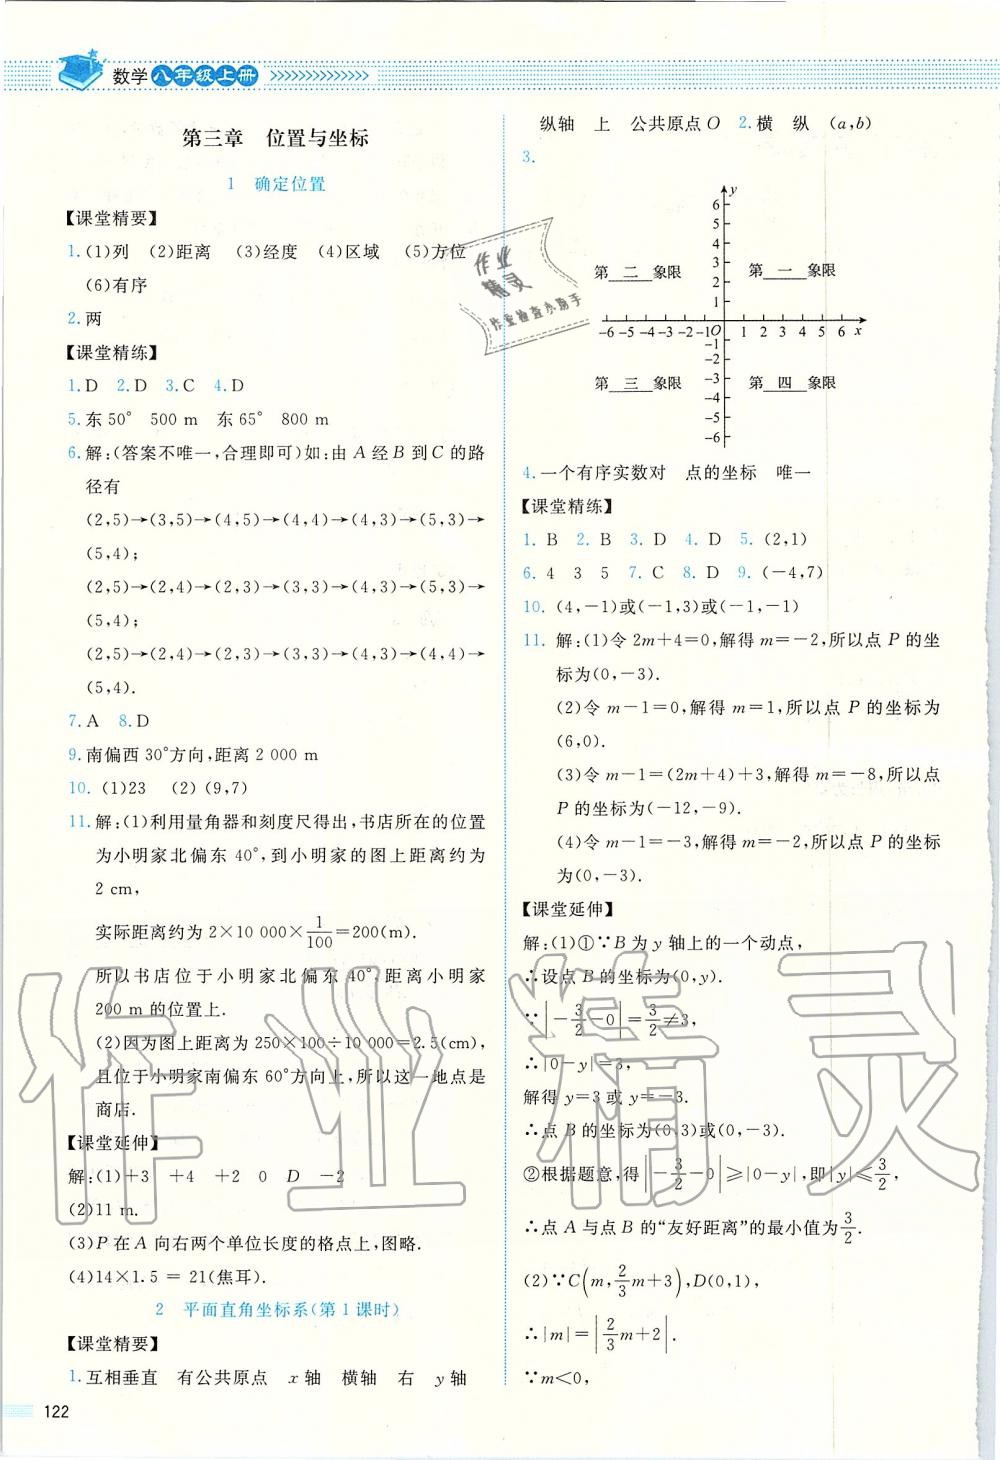 数学八年级上册
第三章 位置与坐标
1 确定位置
【课堂精要】
1.(1)列 (2)距离 (3)经度 (4)区域 (5)方位
(6)有序
2.两
【课堂精练】
1.D 2.D 3.C 4.D
5.东50° 500 m 东65° 800 m
6.解:(答案不唯一,合理即可)如:由A经B到C的路
径有
(2,5)→(3,5)→(4,5)→(4,4)→(4,3)→(5,3)→
(5,4);
(2,5)→(2,4)→(2,3)→(3,3)→(4,3)→(5,3)→
(5,4);
(2,5)→(2,4)→(2,3)→(3,3)→(4,3)→(4,4)→
(5,4).
7.A 8.D
9.南偏西30°方向,距离2 000 m
10.(1)23 (2)(9,7)
11.解:(1)利用量角器和刻度尺得出,书店所在的位置
为小明家北偏东40°,到小明家的图上距离约为
2 cm,
实际距离约为2×10 000×1/100=200(m).
所以书店位于小明家北偏东40°,距离小明家
200 m的位置上.
(2)因为图上距离为250×100÷10 000=2.5(cm),
且位于小明家南偏东60°方向上,所以这一地点是
商店.
【课堂延伸】
解:(1)+3 +4 +2 0 D -2
(2)11 m.
(3)P在A向右两个单位长度的格点上,图略.
(4)14×1.5 = 21(焦耳).
2 平面直角坐标系(第1课时)
【课堂精要】
1.互相垂直 有公共原点 x轴 横轴 右 y轴
纵轴 上 公共原点O 2.横 纵 (a,b)
3.
y
6
5
4
3
2
1
第 二 象限 第 一 象限
-6-5-4-3-2-1O 1 2 3 4 5 6 x
-1
-2
-3
-4
-5
-6
第 三 象限 第 四 象限
4.一个有序实数对 点的坐标 唯一
【课堂精练】
1.B 2.B 3.D 4.D 5.(2,1)
6.4 3 5 7.C 8.D 9.(-4,7)
10.(4,-1)或(-1,3)或(-1,-1)
11.解:(1)令2m+4=0,解得m=-2,所以点P的坐
标为(0,-3).
(2)令m-1=0,解得m=1,所以点P的坐标为
(6,0).
(3)令m-1=(2m+4)+3,解得m=-8,所以点
P的坐标为(-12,-9).
(4)令m-1=-3,解得m=-2,所以点P的坐标
为(0,-3).
【课堂延伸】
解:(1)①∵B为y轴上的一个动点,
∴设点B的坐标为(0,y).
∵|-3/2-0|=3/2≠3,
∴|0-y|=3,
解得y=3或y=-3.
∴点B的坐标为(0,3)或(0,-3).
②根据题意,得|-3/2-0|≥|0-y|,即|y|≤3/2,
∴点A与点B的“友好距离”的最小值为3/2.
(2)∵C(m,2/3m+3),D(0,1),
∴|m|=|2/3m+2|.
∵m<0,
122
作业
精灵
作业检查小助手
作业精灵